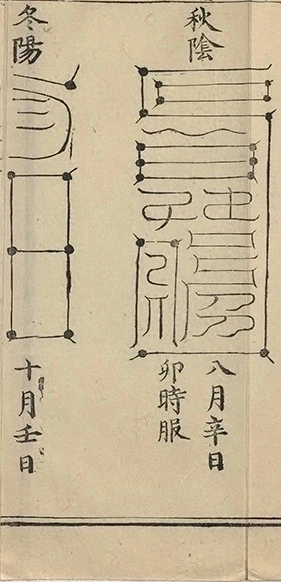 秋陰
八月辛日
卯時服
冬陽
十月壬日